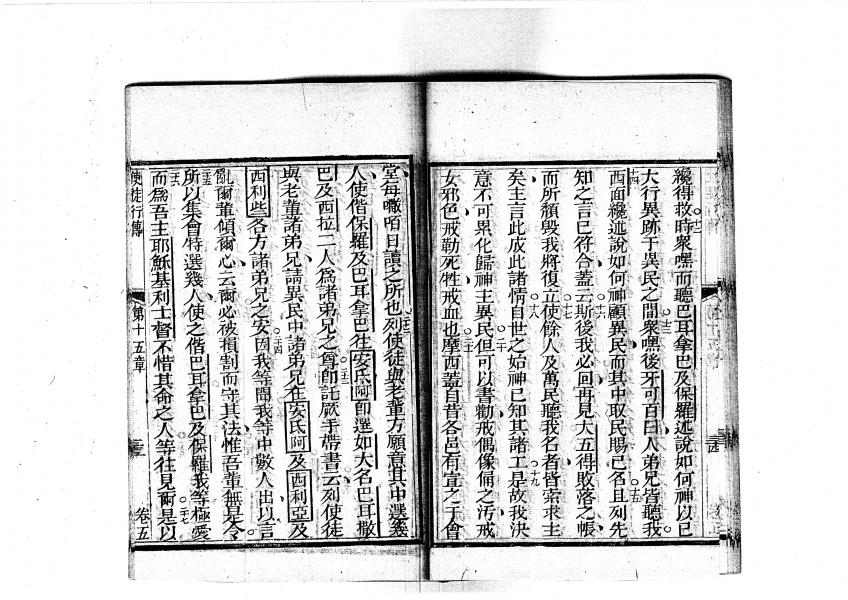 纔得救時衆嘿而聽巴耳拿巴及保羅述說如何神以己
大行異跡于異民之間衆嘿後牙可百曰人弟兄皆聽我
西面纔述說如何神顧異民而其中取民賜己名且列先
知之言已符合蓋云斯後我必回再見大五得敗落之帳
而所頹毀我將復立使餘人及萬民聽我名者皆索求主
矣主言此成此諸情自世之始神已知其諸工是故我決
意不可累化歸神主異民但可以書勸戒偶像偏之污戒
女邪色戒勒死牲戒血也摩西蓋自昔各邑有宣之于會
堂每嗽咟日讀之所也列使徒與老輩方願意其中選幾
人使偕保羅及巴耳拿巴往安氐阿卽選如大名巴耳撒
巴及西拉二人爲諸弟兄之尊卽託厥手帶書云列使徒
與老輩諸弟兄請異民中諸弟兄在安氐阿及西利亞及
西利些各方諸弟兄之安因我等聞我等中數人出以言
亂爾輩傾爾心云爾必被損割而守其法惟吾輩無是令
所以集會特選幾人使之偕巴耳拿巴及保羅我等極愛
而爲吾主耶穌基利士督不惜其命之人等往見爾是以
使徒行傳
第十五章
卷五